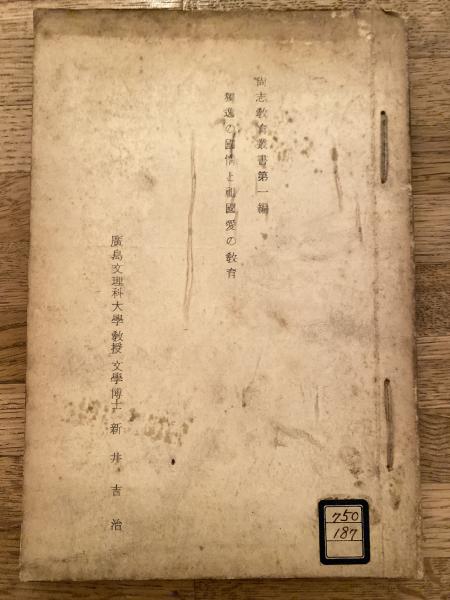 尚志教育叢書第一編
獨逸の國情と祖國愛の教育
廣島文理科大學教授文學博士 新井吉治
750
187